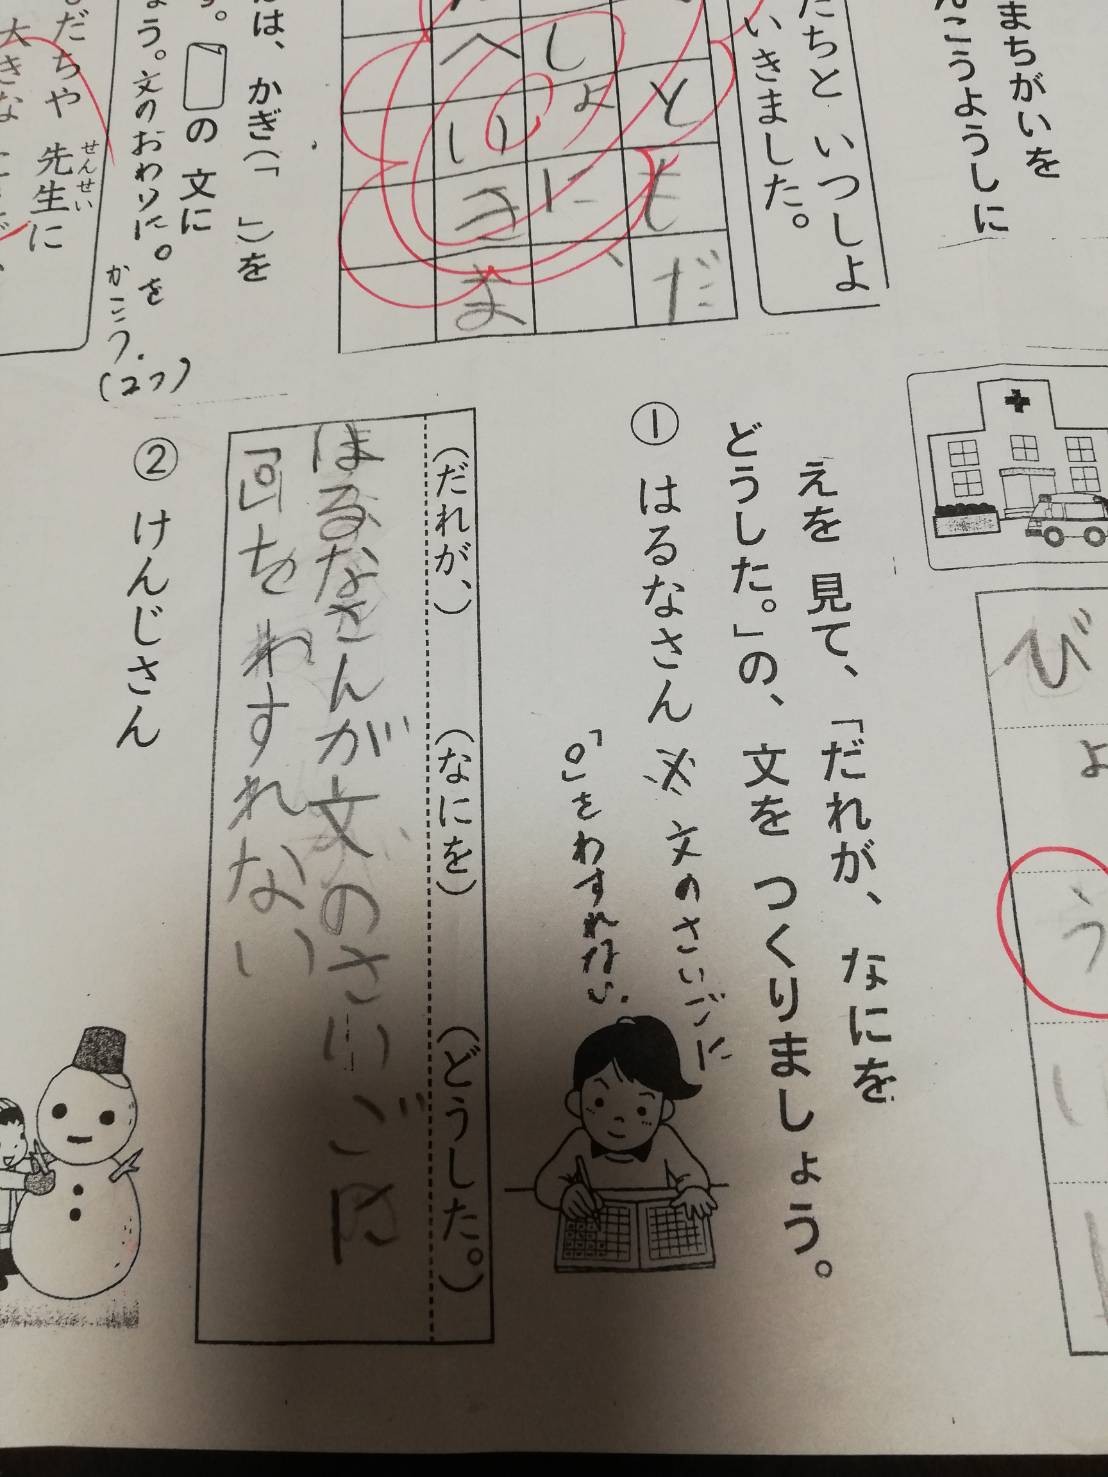 まちがいを
んこうようしに
たちと いつしよ
いきました。
ともだ
しょに、
へいきま
は、かぎ(「 」)を
の 文に
ょう。文のおわりに。を
かこう。
(2つ)
だちや 先生に
せんせい
大きな
びょういし
えを 見て、「だれが、なにを
どうした。」の、文を つくりましょう。
① はるなさん ※ 文のさいごに
「。」をわすれない。
(だれが、) (なにを) (どうした。)
はるなさんが文のさいごに
「。」をわすれない
② けんじさん